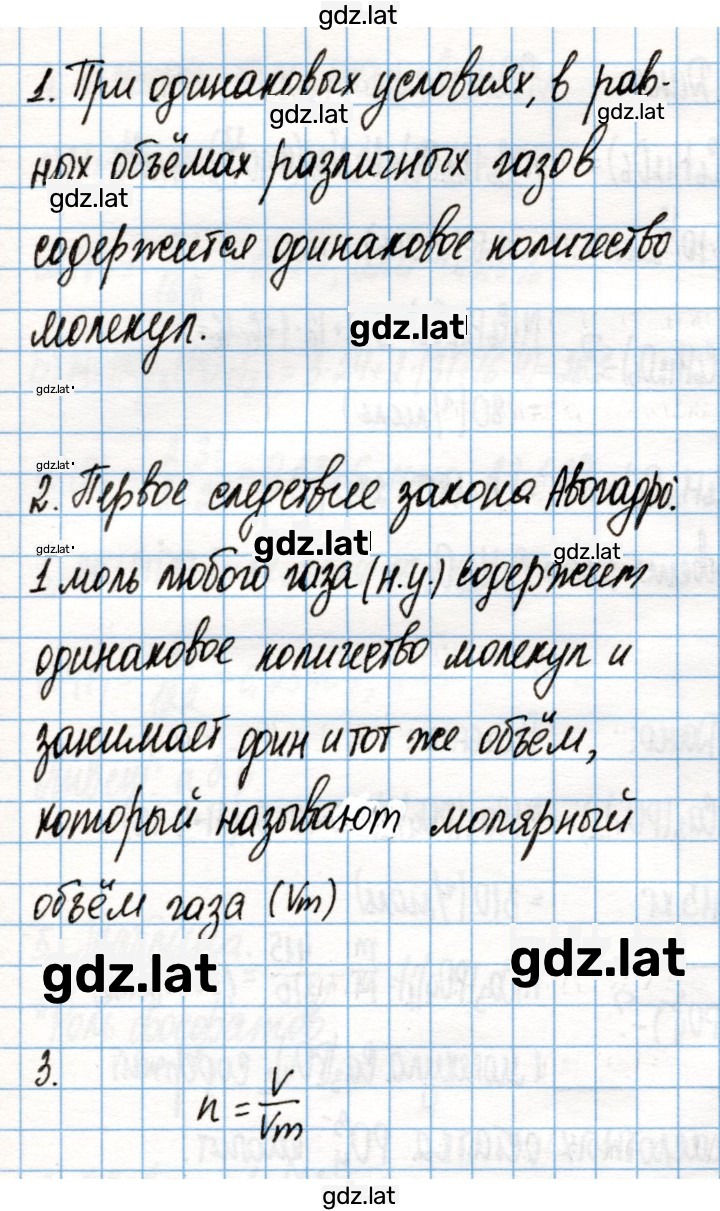 gdz.lat
1. При одинаковых условиях, в рав-
gdz.lat gdz.lat
ных объёмах различных газов
gdz.lat
содержится одинаковое количество
молекул. gdz.lat
gdz.lat
gdz.lat
2. Первое следствие закона Авогадро:
gdz.lat gdz.lat gdz.lat
1 моль любого газа (н.у.) содержит
одинаковое количество молекул и
занимает один и тот же объём,
который называют молярный
объём газа (Vm)
gdz.lat gdz.lat
3.
n = V/Vm
gdz.lat